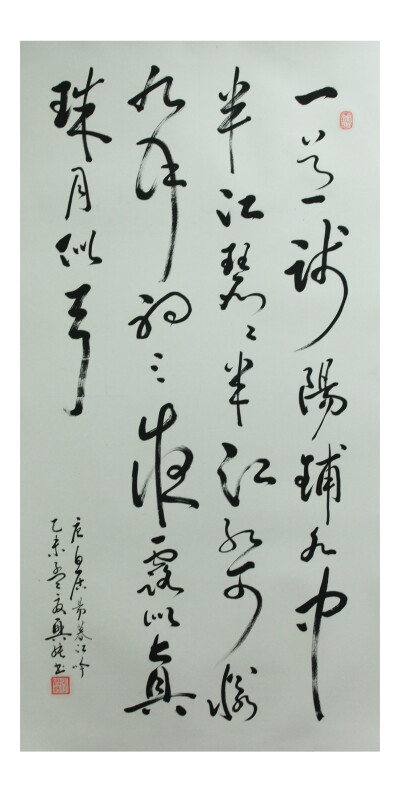 一道残陽鋪水中
半江瑟々半江红可憐
九月初三夜露似真
珠月似弓
唐白居易暮江吟
乙未孟夏興书